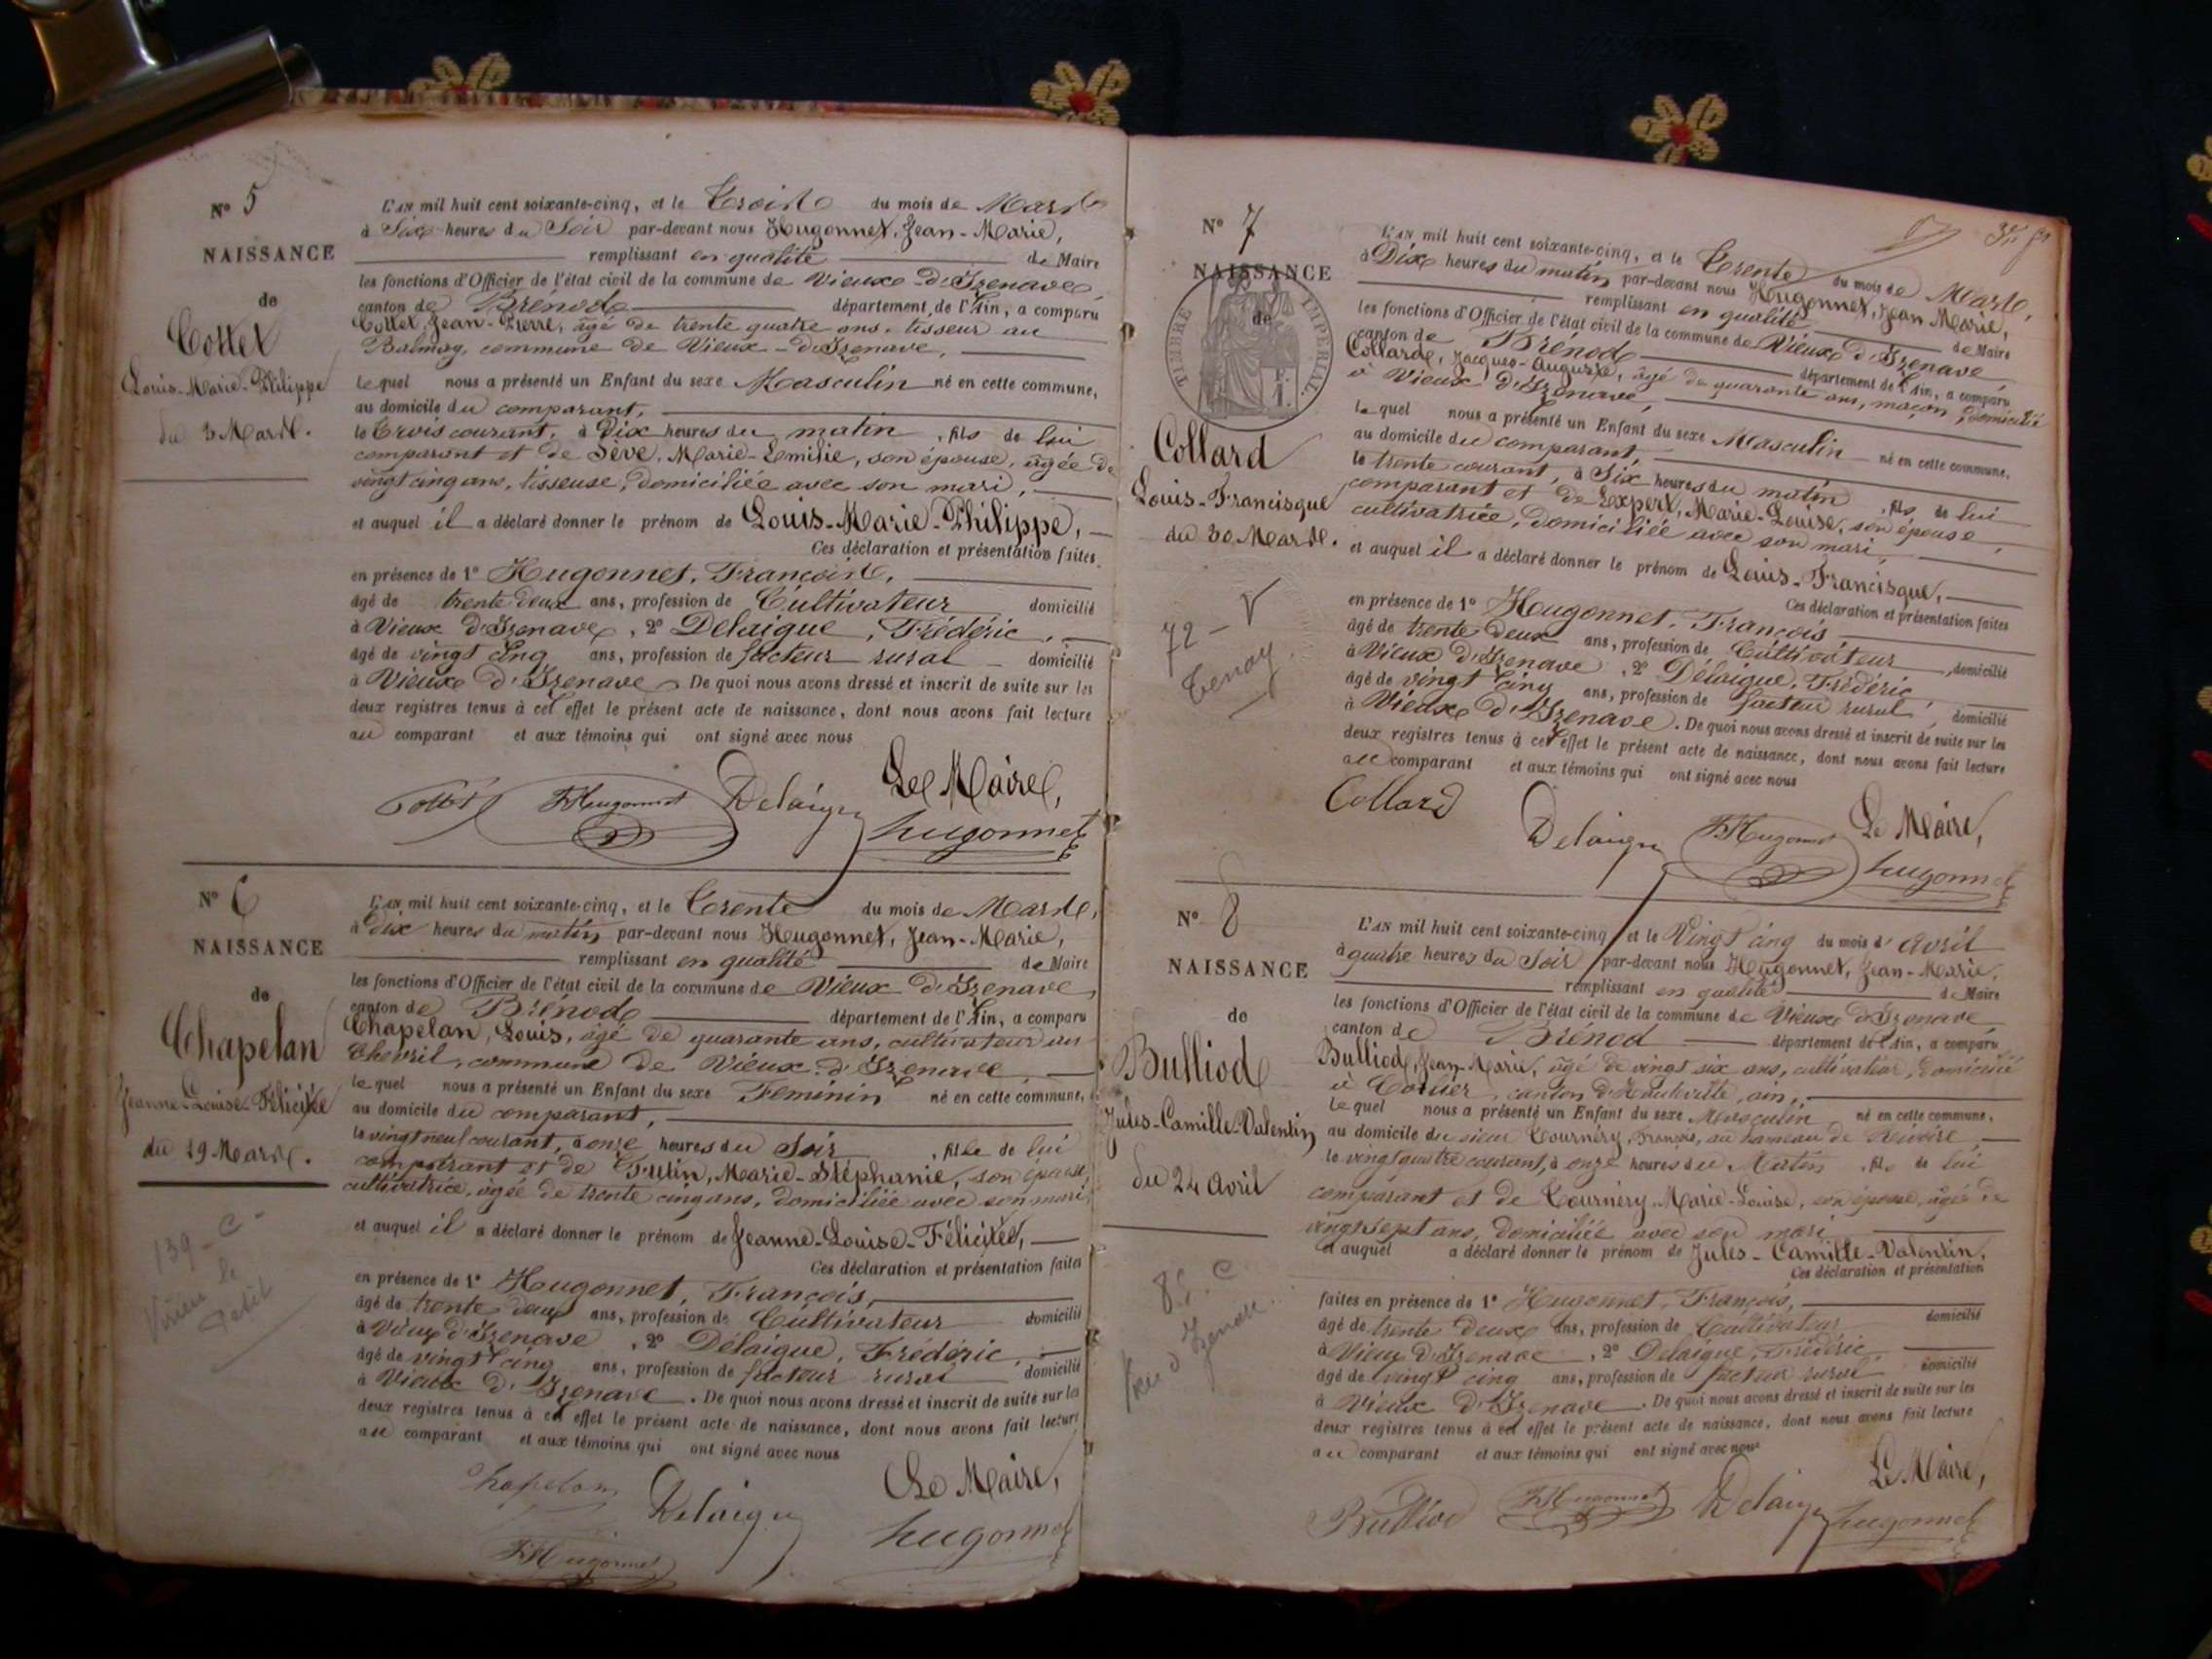 N° 5
NAISSANCE
de
Cottet
Louis-Marie-Philippe
du 3 Mars.
L'AN mil huit cent soixante-cinq, et le Trois du mois de Mars
à Six heures du Soir par-devant nous Hugonnet, Jean-Marie,
remplissant en qualité de Maire
les fonctions d'Officier de l'état civil de la commune de Vieux d'Izenave,
canton de Brénod département de l'Ain, a comparu
Cottet, Jean-Pierre, âgé de trente quatre ans, tisseur au
Balmay, commune de Vieux-d'Izenave,
lequel nous a présenté un Enfant du sexe Masculin né en cette commune,
au domicile du comparant,
le trois courant, à Dix heures du matin, fils de lui
comparant et de Sève, Marie-Emilie, son épouse, âgée de
vingt cinq ans, tisseuse, domiciliée avec son mari,
et auquel il a déclaré donner le prénom de Louis-Marie-Philippe,
Ces déclaration et présentation faites
en présence de 1° Hugonnet, François,
âgé de trente deux ans, profession de Cultivateur domicilié
à Vieux d'Izenave, 2° Delaigue, Frédéric,
âgé de vingt cinq ans, profession de facteur rural domicilié
à Vieux d'Izenave. De quoi nous avons dressé et inscrit de suite sur les
deux registres tenus à cet effet le présent acte de naissance, dont nous avons fait lecture
au comparant et aux témoins qui ont signé avec nous
Le Maire,
Cottet FHugonnet Delaigue Hugonnet
N° 6
NAISSANCE
de
Chapelan
Jeanne-Louise-Félicitée
du 29 Mars.
139 - C -
Virieu le
Petit
L'AN mil huit cent soixante-cinq, et le Trente du mois de Mars,
à Dix heures du matin par-devant nous Hugonnet, Jean-Marie,
remplissant en qualité de Maire
les fonctions d'Officier de l'état civil de la commune de Vieux d'Izenave,
canton de Brénod département de l'Ain, a comparu
Chapelan, Louis, âgé de quarante ans, cultivateur au
Chevril, commune de Vieux d'Izenave,
lequel nous a présenté un Enfant du sexe Féminin né en cette commune,
au domicile du comparant,
le vingt neuf courant, à onze heures du Soir, fille de lui
comparant et de Marie-Stéphanie, son épouse,
cultivatrice, âgée de trente cinq ans, domiciliée avec son mari,
et auquel il a déclaré donner le prénom de Jeanne-Louise-Félicitée,
Ces déclaration et présentation faites
en présence de 1° Hugonnet, François,
âgé de trente deux ans, profession de Cultivateur domicilié
à Vieux d'Izenave, 2° Délaigue, Frédéric,
âgé de vingt cinq ans, profession de facteur rural domicilié
à Vieux d'Izenave. De quoi nous avons dressé et inscrit de suite sur les
deux registres tenus à cet effet le présent acte de naissance, dont nous avons fait lecture
au comparant et aux témoins qui ont signé avec nous
Chapelan Delaigue Le Maire,
FHugonnet Hugonnet
N° 7
NAISSANCE
de
TIMBRE IMPÉRIAL
Collard
Louis-Francisque
du 30 Mars.
72 -
Tenay
L'AN mil huit cent soixante-cinq, et le Trente du mois de Mars,
à Dix heures du matin par-devant nous Hugonnet, Jean Marie,
remplissant en qualité de Maire
les fonctions d'Officier de l'état civil de la commune de Vieux d'Izenave
canton de Brénod département de l'Ain, a comparu
Collard, Jacques-Auguste, âgé de quarante ans, maçon, domicilié
à Vieux d'Izenave,
lequel nous a présenté un Enfant du sexe Masculin né en cette commune,
au domicile du comparant,
le trente courant, à Six heures du matin, fils de lui
comparant et de Expert, Marie-Louise, son épouse,
cultivatrice, domiciliée avec son mari,
et auquel il a déclaré donner le prénom de Louis-Francisque,
Ces déclaration et présentation faites
en présence de 1° Hugonnet, François
âgé de trente deux ans, profession de Cultivateur, domicilié
à Vieux d'Izenave, 2° Délaigue, Frédéric,
âgé de vingt cinq ans, profession de facteur rural, domicilié
à Vieux d'Izenave. De quoi nous avons dressé et inscrit de suite sur les
deux registres tenus à cet effet le présent acte de naissance, dont nous avons fait lecture
au comparant et aux témoins qui ont signé avec nous
Collard Delaigue FHugonnet Le Maire,
Hugonnet
N° 8
NAISSANCE
de
Bulliod
Jules-Camille-Valentin
du 24 avril
L'AN mil huit cent soixante-cinq et le Vingt cinq du mois d'avril
à quatre heures du Soir par-devant nous Hugonnet, Jean-Marie,
remplissant en qualité de Maire
les fonctions d'Officier de l'état civil de la commune de Vieux d'Izenave,
canton de Brénod département de l'Ain, a comparu
Bulliod, Jean-Marie, âgé de vingt six ans, cultivateur, domicilié
à Corlier, canton d'Hauteville, ain,
lequel nous a présenté un Enfant du sexe Masculin né en cette commune,
au domicile du sieur Tournéry, François, au hameau de
le vingt quatre courant, à onze heures du Matin, fils de lui
comparant et de Tournéry, Marie-Louise, son épouse, âgée de
vingt sept ans, domiciliée avec son mari
et auquel a déclaré donner le prénom de Jules-Camille-Valentin,
Ces déclaration et présentation
faites en présence de 1° Hugonnet, François,
âgé de trente deux ans, profession de Cultivateur domicilié
à Vieux d'Izenave, 2° Delaigue, Frédéric
âgé de vingt cinq ans, profession de facteur rural domicilié
à Vieux d'Izenave. De quoi nous avons dressé et inscrit de suite sur les
deux registres tenus à cet effet le présent acte de naissance, dont nous avons fait lecture
au comparant et aux témoins qui ont signé avec nous
Le Maire,
Bulliod FHugonnet Delaigue Hugonnet